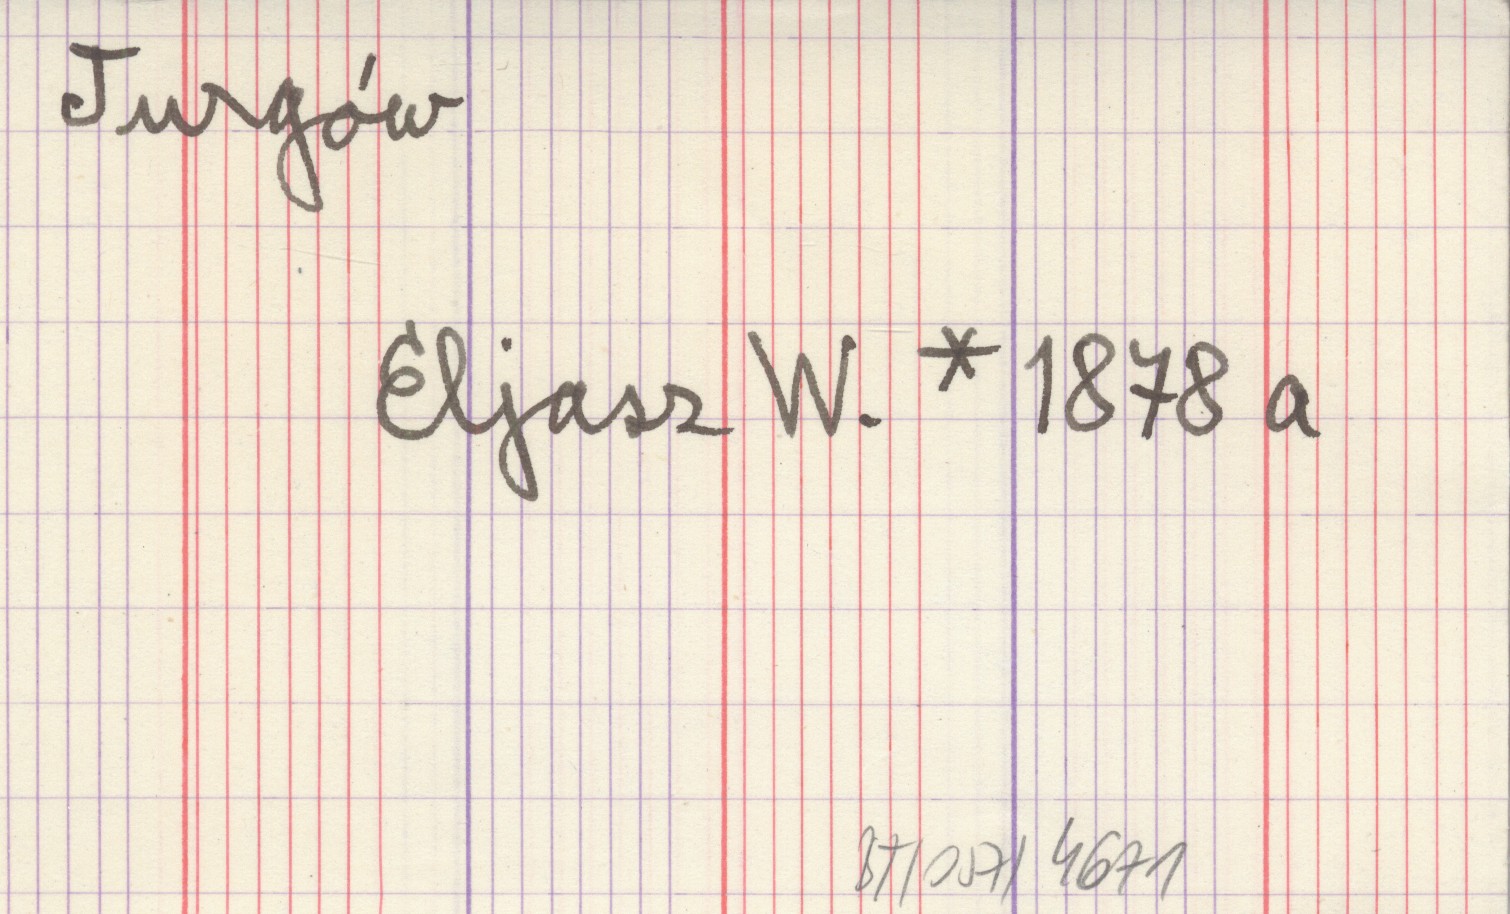 Jurgów
Eljasz W. * 1878 a
BT/057/4671